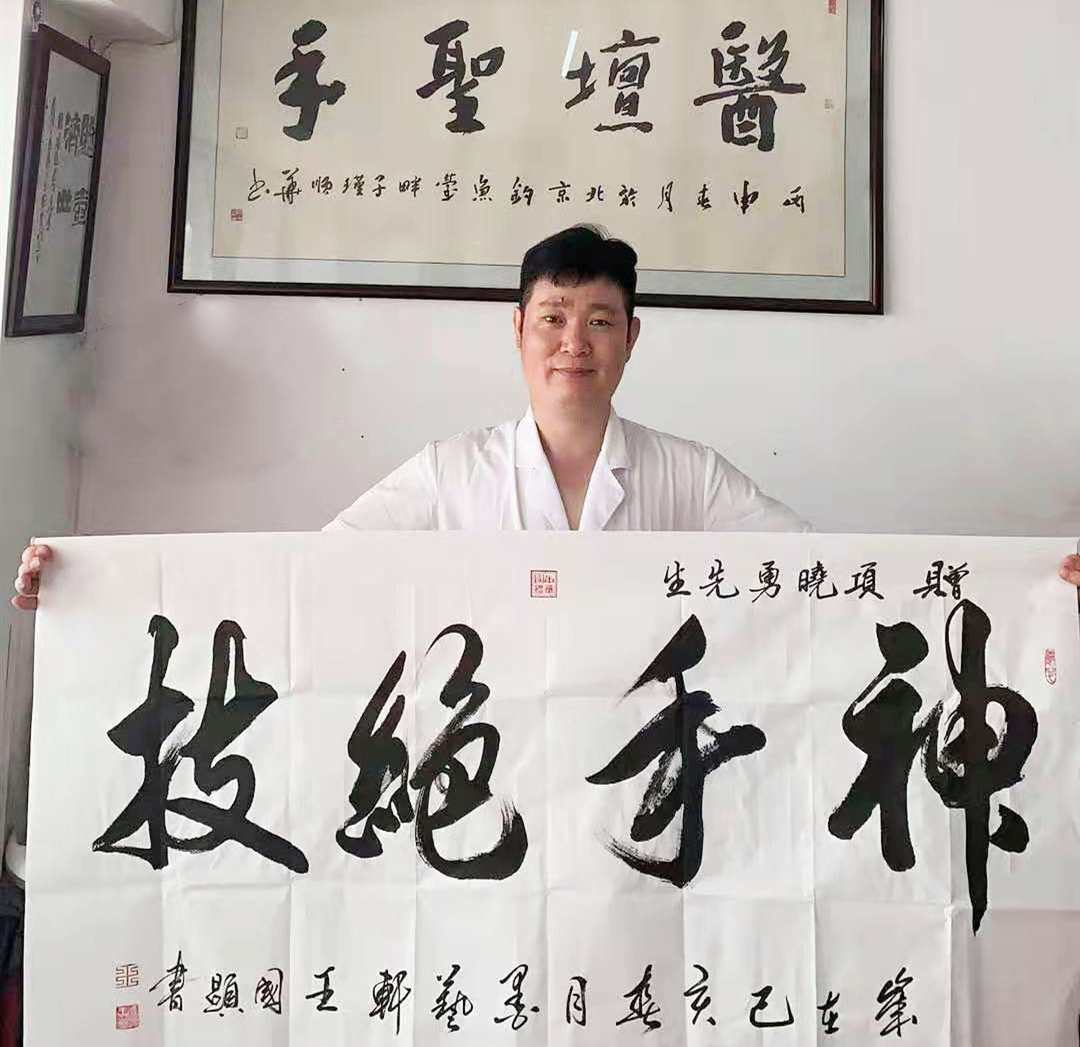 醫壇聖手
丙申春月於北京釣魚臺畔子瑾順華書
贈 項曉勇先生
神手絕技
歲在己亥春月墨藝軒王國顯書